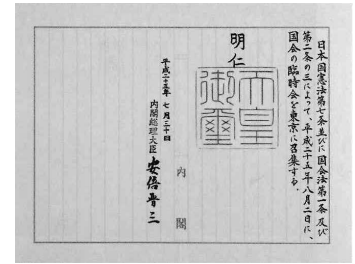 日本国憲法第七条並びに国会法第一条及び
第二条の三によって、平成二十五年八月二日に、
国会の臨時会を東京に召集する。
明仁
天皇
御璽
平成二十五年 七月三十日
内閣総理大臣 安倍晋三
内閣